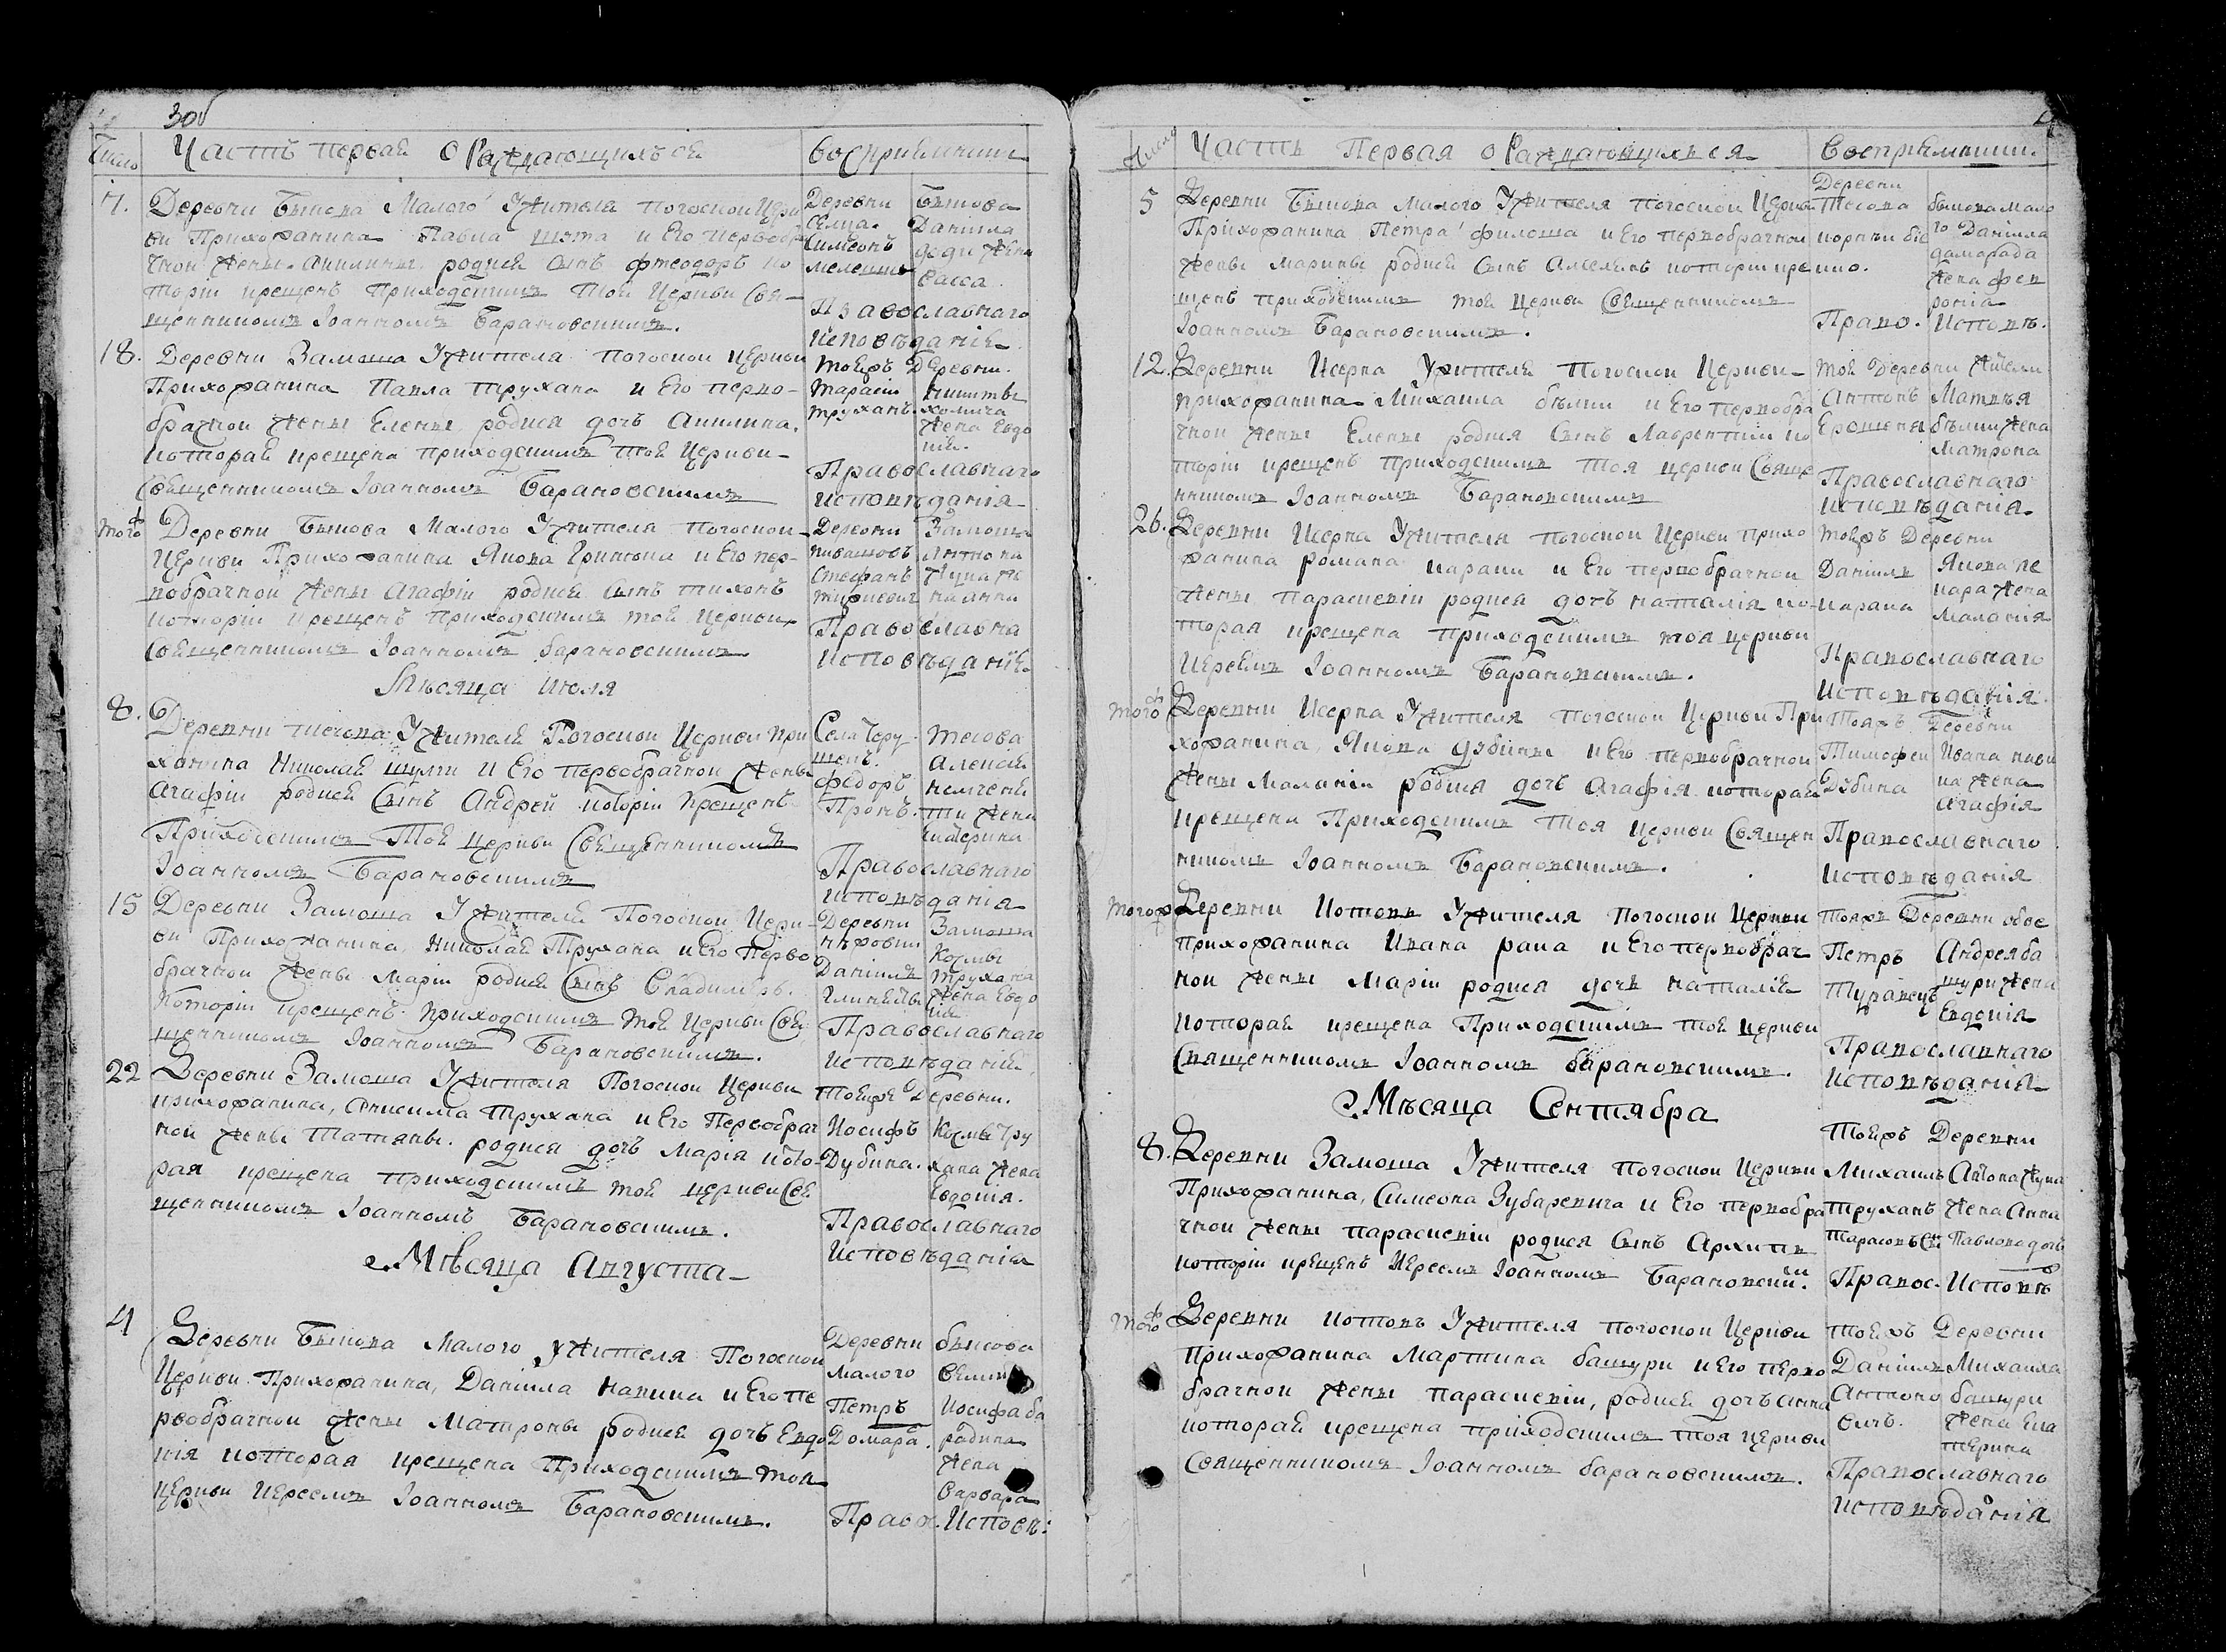 30б
Число
Часть первая о Раждающихъся
восприемники
7.
Деревни Бытова Малого Ужителя погоской Церк
ви Прихожанина Павла и Его первобра
чной жены Акилины родися сынъ Фтеодоръ ко
торіи крещенъ Приходскимъ Тоя Церкви Свя-
щенникомъ Іоанномъ Барановскимъ.
Деревни
Симеонъ
Бытова
Даніила
жена
Васса
Православнаго
исповѣданія
18.
Деревни Замоша Ужителя погоской церкви
Прихожанина Павла Трухана и Его перво-
брачной жены Елены родися дочь Акилина.
которая крещена приходскимъ тоя Церкви
Священникомъ Іоанномъ Барановскимъ
тоежъ Деревни.
Тарасій
Труханъ.
Никиты
холмича
жена Евдо
кія.
Православнаго
исповѣданія
того ж
Деревни Бытова Малого Ужителя погоской
Церкви Прихожанина Якова и Его пер-
вобрачной жены Агафіи родися сынъ тихонъ
которіи крещенъ приходскимъ тоя Церкви
Священникомъ Іоанномъ барановскимъ
Деревни
Стефанъ
Замоша
Антона
Православна
исповѣданія
Мѣсяца Июля
8.
Деревни Ужителя Погоской Церкви при
хожанина Николая шулги и Его первобрачной жены
Агафіи родися Сынъ Андрей которіи крещенъ
Приходскимъ Тоя церкви Священникомъ
Іоанномъ Барановскимъ
Села
Федоръ
Пронъ.
тесова
алексея
жена
катерина
Православнаго
исповѣданія
15
Деревни Замоша Ужителя Погоской Церк-
ви Прихожанина, Николая Трухана и Его Перво
брачной жены Маріи родися Сынъ Владимеръ.
Которіи крещенъ приходскимъ тоя Церкви Свя
щенникомъ Іоанномъ Барановскимъ.
Деревни
Даніилъ
Замоша
Козмы
трухана
жена Евдо
кія
Православнаго
исповѣданія
22
Деревни Замоша Ужителя Погоской Церкви
прихожанина, Онисима Трухана и Его Первобрач
ной жены Татяны. родися дочь Марія кото-
рая крещена приходскимъ тоя церкви Свя
щенникомъ Іоанномъ Барановскимъ.
Тоежъ Деревни.
Иосифъ
Дубина.
Козмы Тру
хана жена
Евдокія.
Православнаго
Исповѣданія
Мѣсяца Августа
4
Деревни Бытова Малого Ужителя Погоской
Церкви Прихожанина, Даніила и Его пе
рвобрачной жены Матроны родися дочь Евдо
кія которая крещена Приходскимъ тоя
церкви Иереемъ Іоанномъ Барановскимъ.
Деревни
малого
Петръ
Домара.
бытова
Иосифа ба
радина
жена
Варвара
Право. Исповѣ:
Число
Часть Первая о Раждающихъся
Восприемники.
5
Деревни Бытова Малого Ужителя погоской Церкви
Прихожанина Петра филоша и Его первобрачной
жены Марины родися Сынъ которіи кре
щенъ приходскимъ тоя Церкви Священникомъ
Іоанномъ Барановскимъ.
Деревни
Тесова
бытова мало
го Даніила
дамарада
жена фев
ронія
Право. Исповѣ.
12.
Деревни Исерна Ужителя Погоской Церкви
прихожанина Михаила бѣлки и Его первобра
чной жены Елены родися Сынъ Лаврентій ко
торіи крещенъ приходскимъ Тоя церкви Свяще
нникомъ Іоанномъ Барановскимъ
тоя Деревни жители
Антонъ
Ерошеня
Матвѣя
бѣлки жена
Матрона
Православнаго
исповѣданія
26.
Деревни Исерна Ужителя погоской Церкви прихо
жанина романа караки и Его первобрачной
жены Параскевіи родися дочь наталія ко-
торая крещена приходскимъ тоя церкви
Иереемъ Іоанномъ Барановскимъ.
тоежъ Деревни
Даніилъ
карака
Якова пе
кара жена
Маланія
Православнаго
Исповѣданія.
того ж
Деревни Исерна Ужителя погоской Церкви При
хожанина, Якова дубины и Его первобрачной
жены Маланіи родися дочь Агафія которая
крещена Приходскимъ Тоя Церкви Священ
никомъ Іоанномъ Барановскимъ.
Тояжъ Деревни
Тимофей
Дубина
Ивана
жена
агафія
Православнаго
исповѣданія
Того ж
Деревни Котовъ Ужителя погоской Церкви
прихожанина Ивана рака и Его первобрач
ной жены Маріи родися дочь наталія
которая крещена Приходскимъ тоя церкви
Священникомъ Іоанномъ барановскимъ.
тояжъ Деревни обое
Петръ
Туравецъ
Андрея ба
шури жена
Евдокія
Православнаго
исповѣданія
Мѣсяца Сентября
8.
Деревни Замоша Ужителя погоской Церкви
Прихожанина, Симеона Зубаревича и Его первобра
чной жены параскевіи родися Сынъ Архипъ
которіи крещенъ Иереемъ Іоанномъ Барановскимъ.
Тоежъ Деревни
Михаилъ
Труханъ
Тарасовъ сы
Антона
жена Анна
Павлова дочь
Правос. Исповѣ
того ж
Деревни Котовъ Ужителя погоской Церкви
прихожанина Мартина башури и Его перво
брачной жены параскевіи, родися дочь анна
которая крещена приходскимъ тоя церкви
Священникомъ Іоанномъ барановскимъ.
тоежъ Деревни
Даніилъ
Антоно
вичъ.
Михаила
башури
жена Ека
терина
Православнаго
исповѣданія